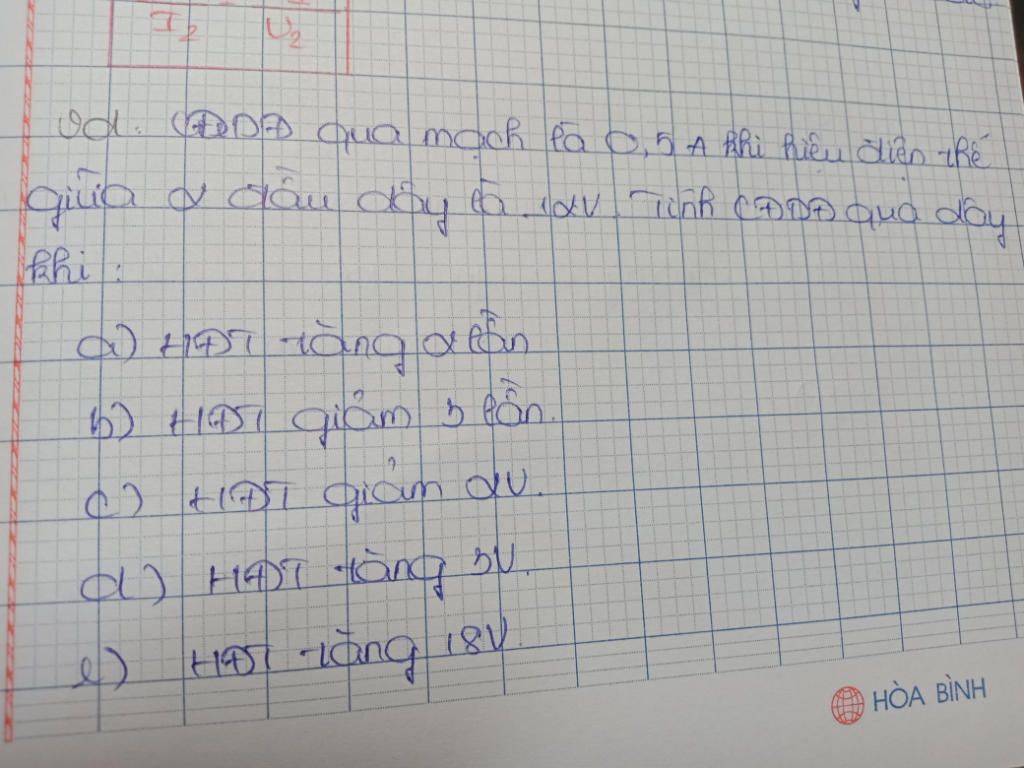 I₂ U₂
Vd. CĐDĐ qua mạch là 0,5A khi hiệu điện thế
giữa 2 đầu dây là 12V. Tính CĐDĐ qua dây
khi:
a) HĐT tăng 2 lần
b) HĐT giảm 3 lần.
c) HĐT giảm 2V.
d) HĐT tăng 3V.
e) HĐT tăng 18V.
HÒA BÌNH